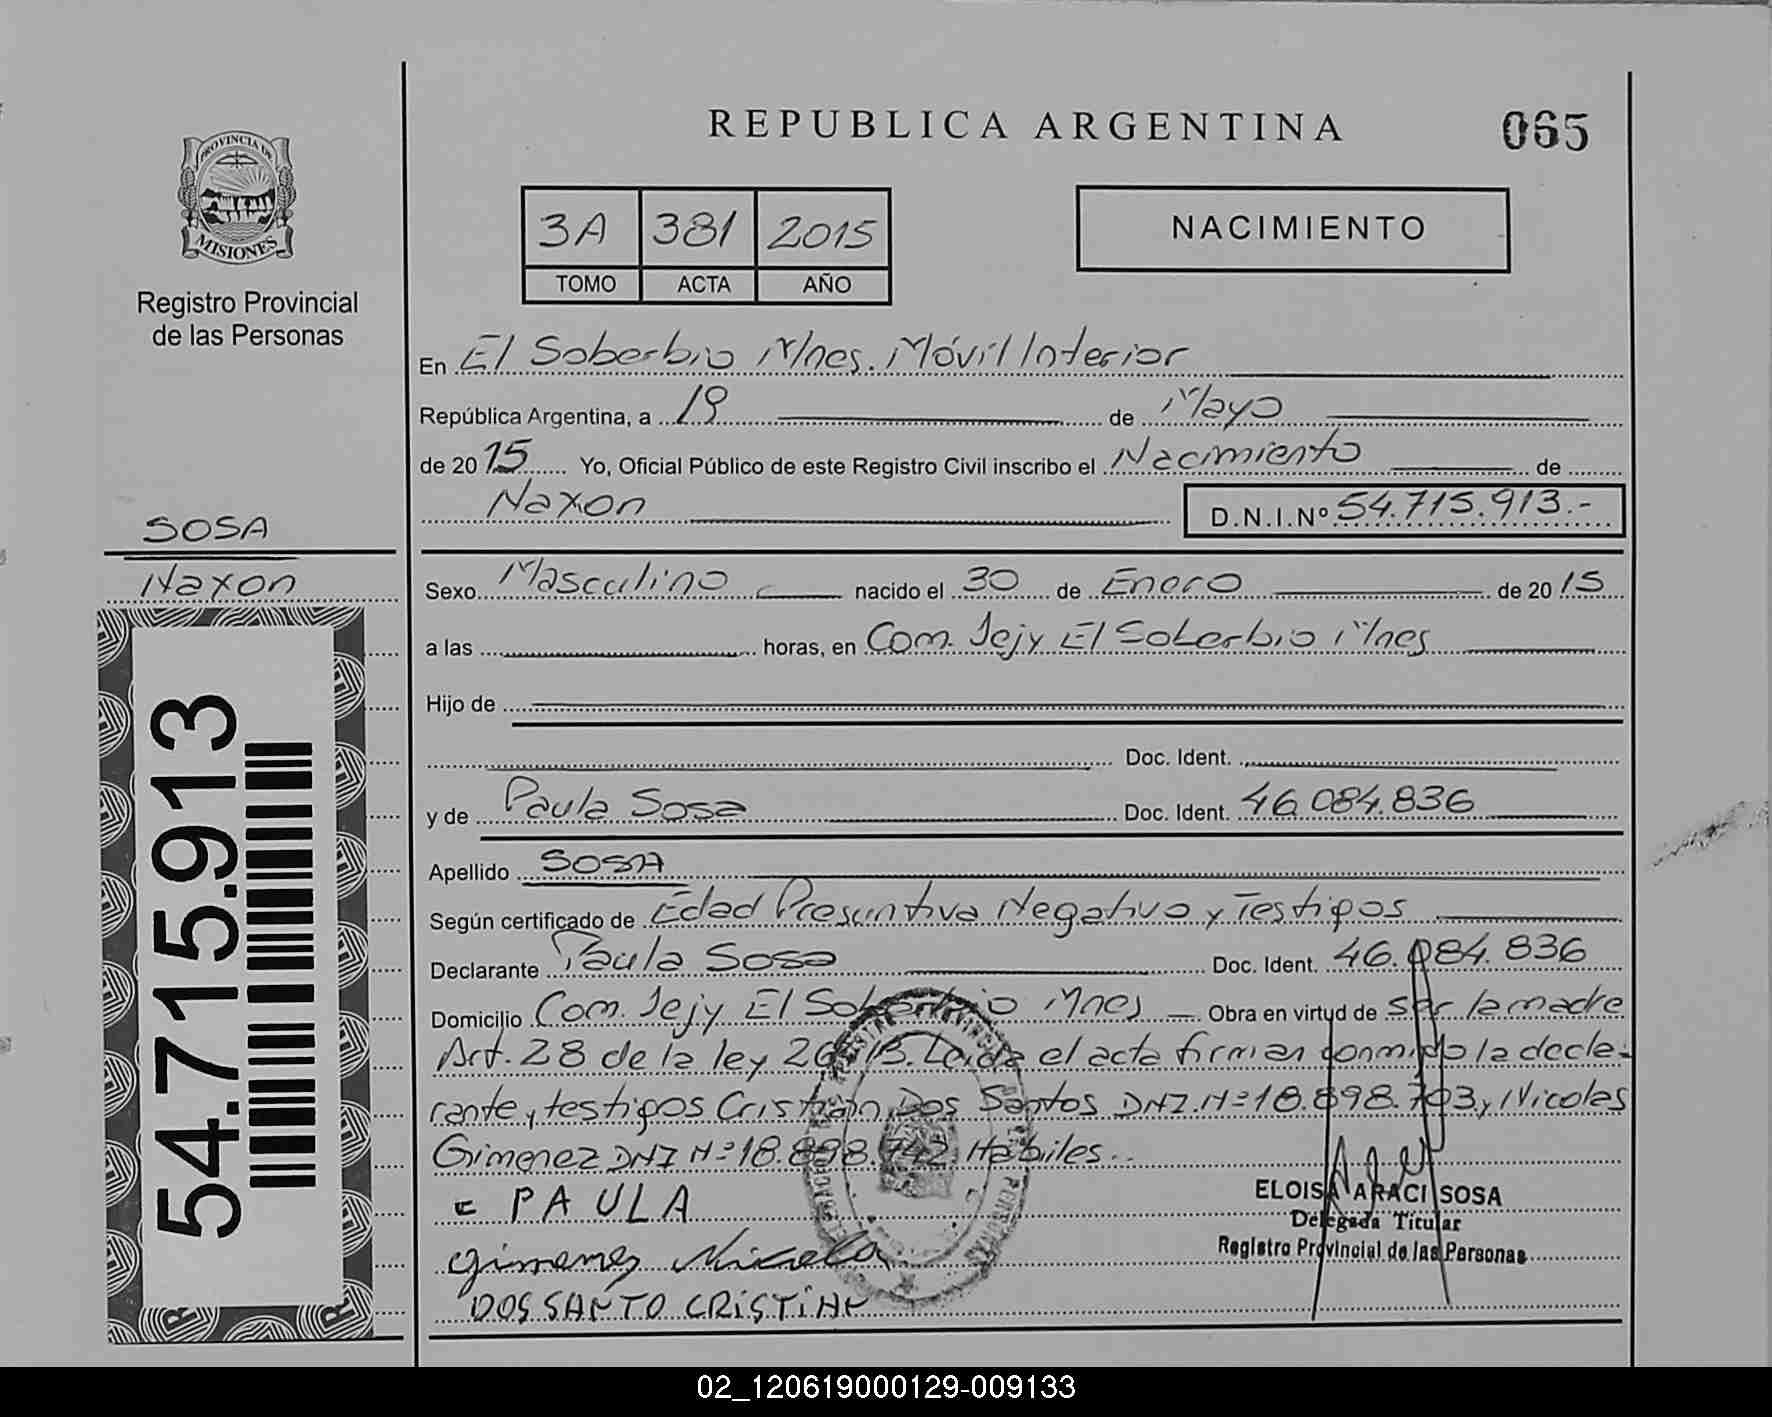 REPUBLICA ARGENTINA
065
PROVINCIA DE
MISIONES
Registro Provincial
de las Personas
3A 381 2015
TOMO ACTA AÑO
NACIMIENTO
En El Soberbio Mnes. Móvil Interior
República Argentina, a 19 de Mayo
de 20 15 Yo, Oficial Público de este Registro Civil inscribo el Nacimiento de
Naxon D.N.I.Nº 54.715.913.-
SOSA
Naxon
Sexo Masculino nacido el 30 de Enero de 20 15
a las horas, en Com. Jejy El Soberbio Mnes
Hijo de
Doc. Ident.
y de Paula Sosa Doc. Ident. 46.084.836
Apellido SOSA
Según certificado de Edad Presuntiva Negativo y Testigos
Declarante Paula Sosa Doc. Ident. 46.084.836
Domicilio Com. Jejy El Soberbio Mnes Obra en virtud de ser la madre
Art. 28 de la ley Leída el acta firman conmigo la decla-
rante y testigos Cristian Dos Santos DNI.Nº18.898.703 y Nicolas
Gimenez DNI Nº18.898.742 Hábiles..
PAULA
Gimenez Nicola
DOS SANTO CRISTIAN
ELOISA ARACI SOSA
Delegada Titular
Registro Provincial de las Personas
54.715.913
02_120619000129-009133